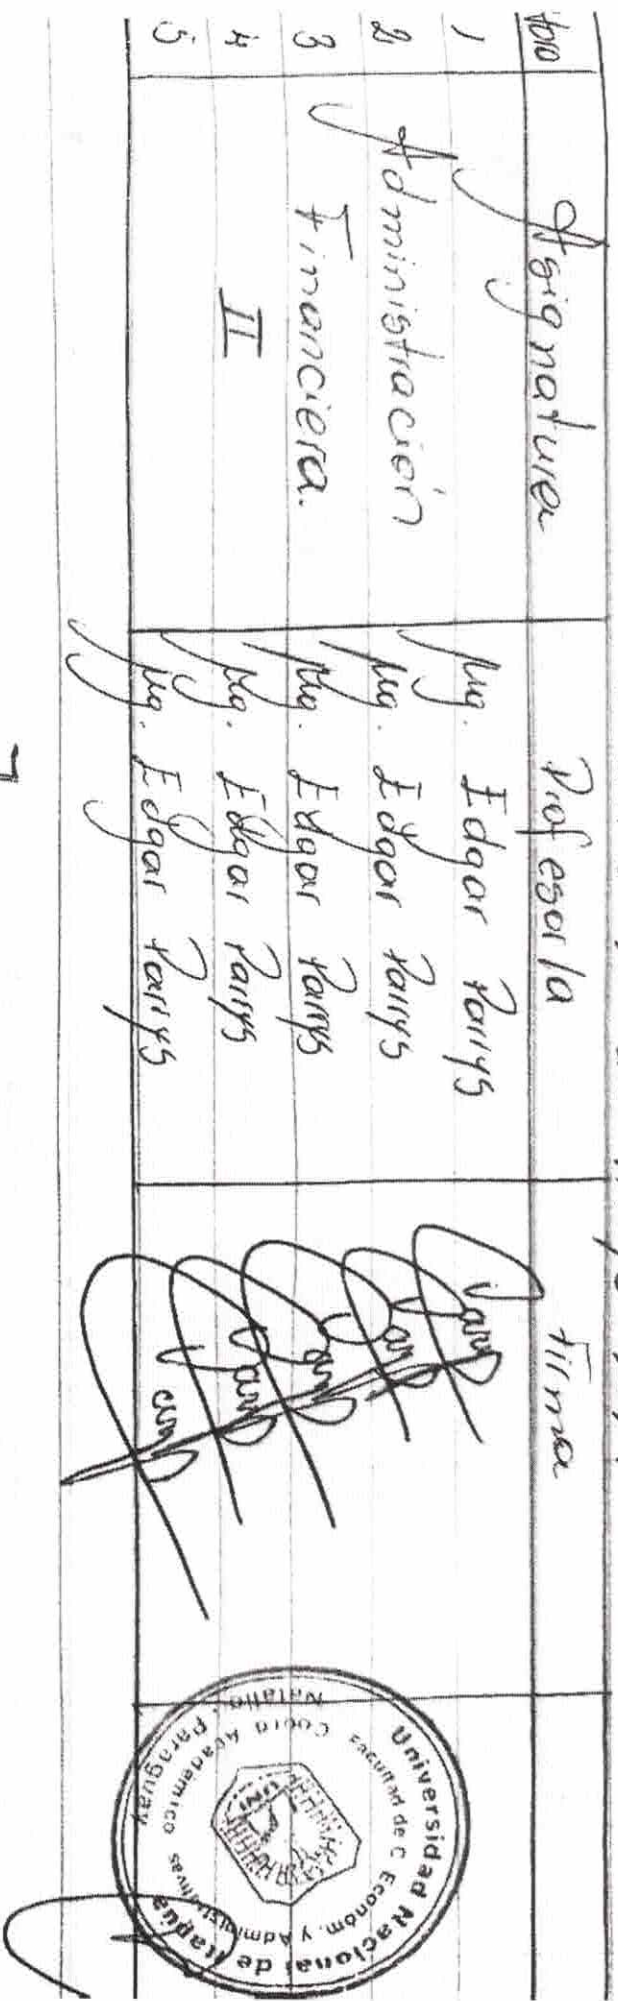 Hora Asignatura Profesor/a Firma
1 Mg. Edgar Parrys
2 Administración Mg. Edgar Parrys
3 Financiera. Mg. Edgar Parrys
4 II Mg. Edgar Parrys
5 Mg. Edgar Parrys
Universidad Nacional de Itapúa
Facultad de C Económ. y Administrativas
Coord Académico
Natalio - Paraguay
UNI